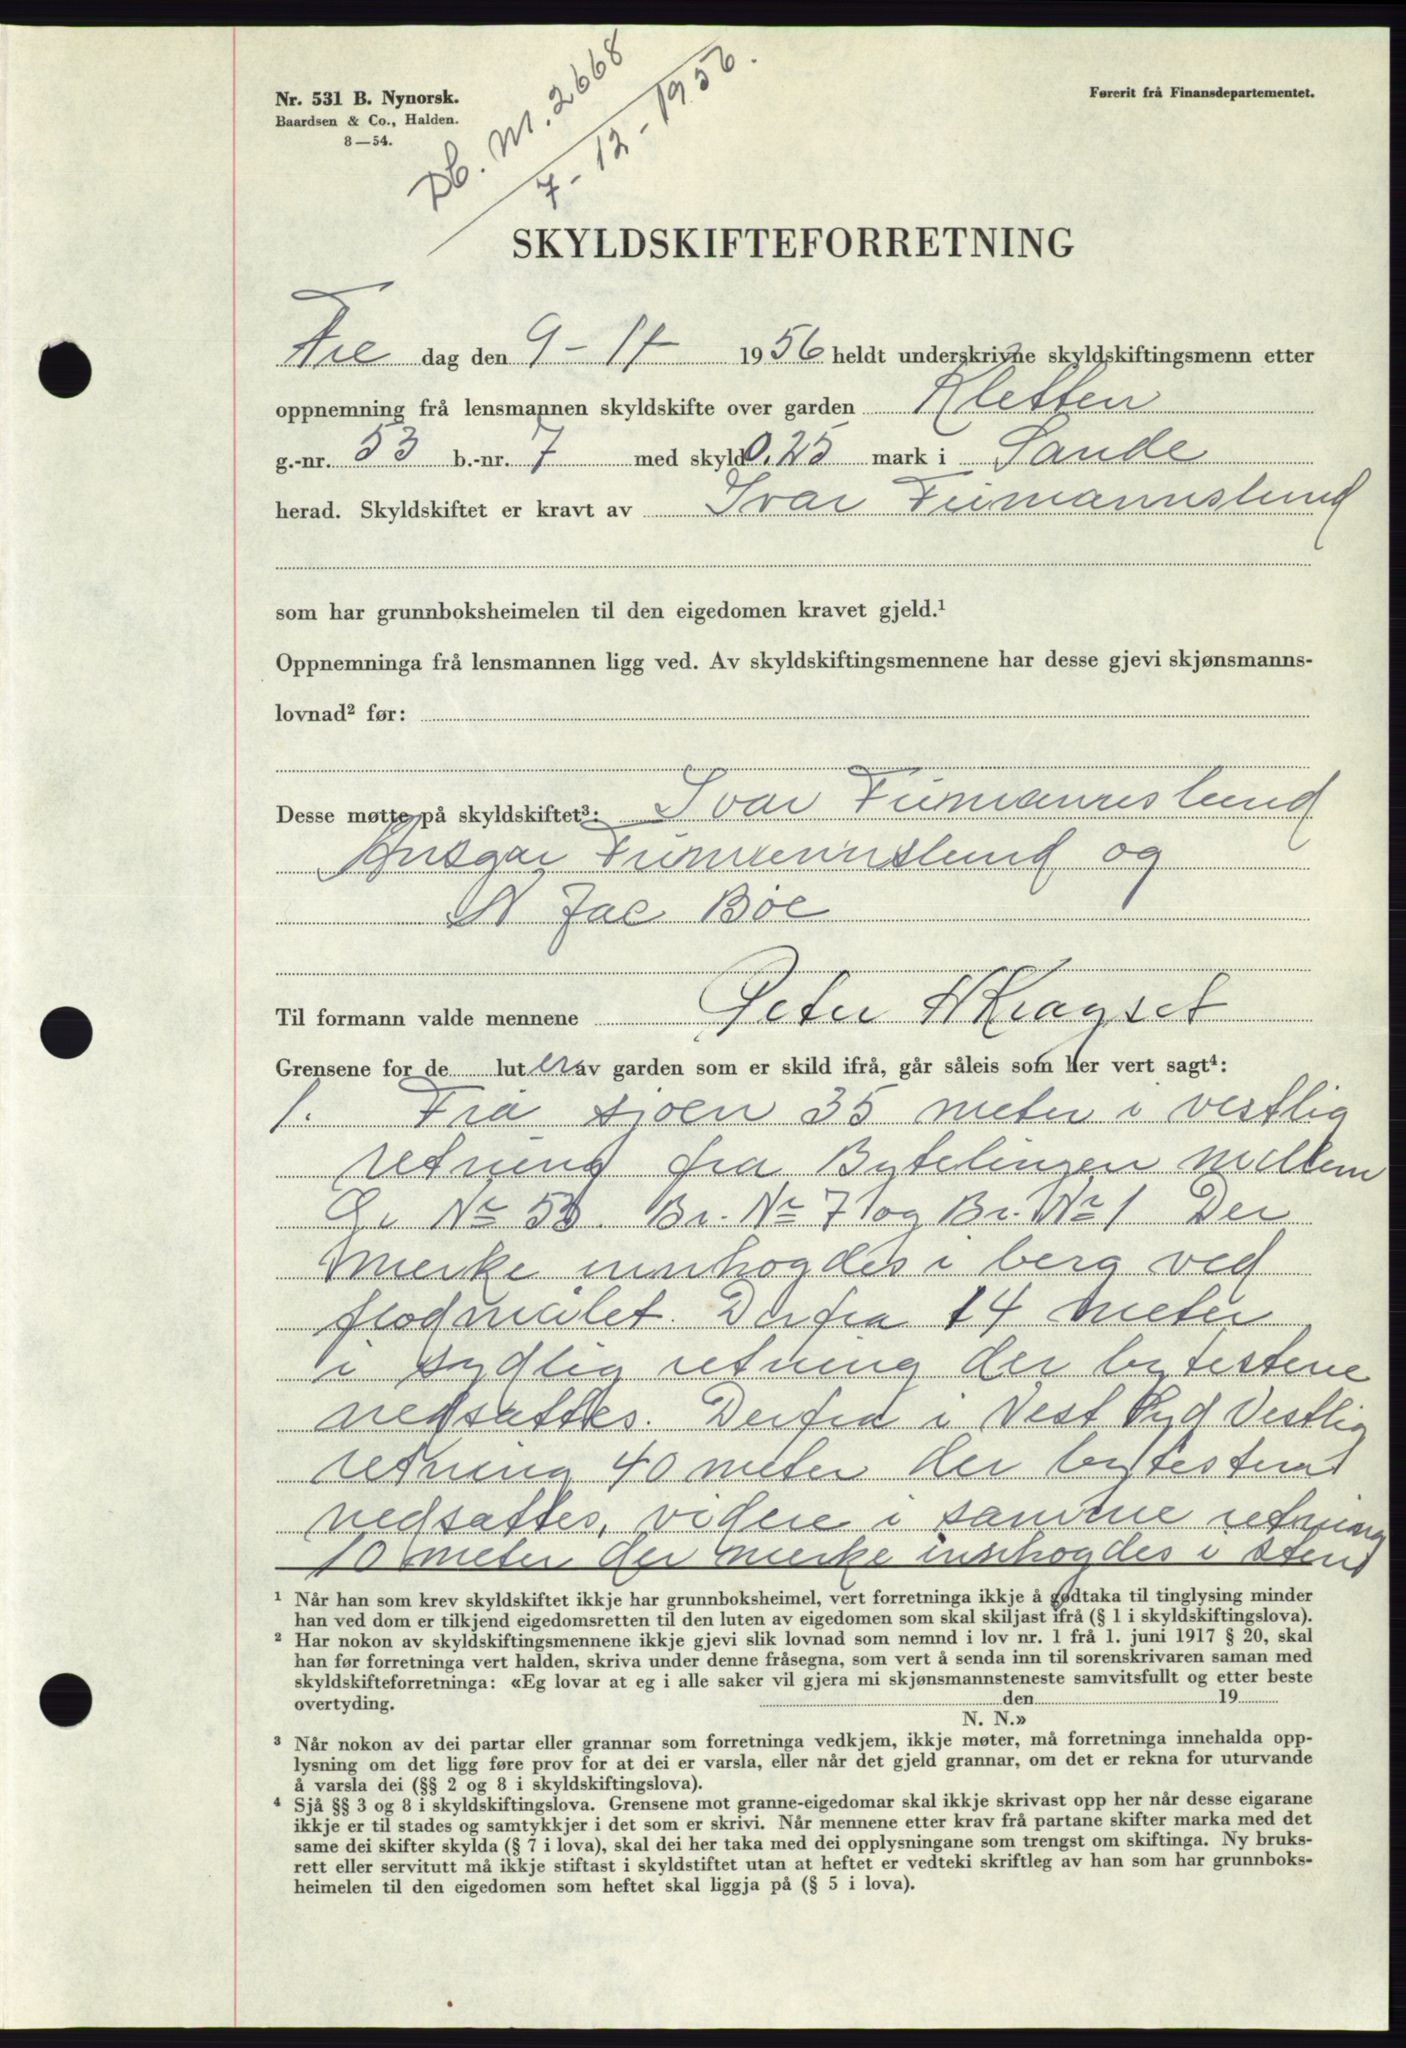 Nr. 531 B. Nynorsk.
Baardsen & Co., Halden.
8—54.
Db. nr. 2668
7-12-1956.
Førerit frå Finansdepartementet.
SKYLDSKIFTEFORRETNING
Fre dag den 9-11 1956 heldt underskrivne skyldskiftingsmenn etter
oppnemning frå lensmannen skyldskifte over garden Kletten
g.-nr. 53 b.-nr. 7 med skyld 0.25 mark i Sande
herad. Skyldskiftet er kravt av Ivar Furmannslund
som har grunnboksheimelen til den eigedomen kravet gjeld.¹
Oppnemninga frå lensmannen ligg ved. Av skyldskiftingsmennene har desse gjevi skjønsmanns-
lovnad² før:
Desse møtte på skyldskiftet³: Ivar Furmannslund
Ansgar Furmannslund og
N Jac Böe
Til formann valde mennene Peter H Kragset
Grensene for de luter av garden som er skild ifrå, går såleis som her vert sagt⁴:
1. Fra sjöen 35 meter i vestlig
retning fra Bytelingen mellem
Gr No 53 Br. No 7 og Br. No 1 Der
merke innhogdes i berg ved
flodmålet. Derfra 14 meter
i sydlig retning der bytestene
nedsattes. Derfra i Vest Syd Vestlig
retning 40 meter der bytesten
nedsattes, videre i samme retning
10 meter der merke innhogdes i sten
¹ Når han som krev skyldskiftet ikkje har grunnboksheimel, vert forretninga ikkje å godtaka til tinglysing minder
han ved dom er tilkjend eigedomsretten til den luten av eigedomen som skal skiljast ifrå (§ 1 i skyldskiftingslova).
² Har nokon av skyldskiftingsmennene ikkje gjevi slik lovnad som nemnd i lov nr. 1 frå 1. juni 1917 § 20, skal
han før forretninga vert halden, skriva under denne fråsegna, som vert å senda inn til sorenskrivaren saman med
skyldskifteforretninga: «Eg lovar at eg i alle saker vil gjera mi skjønsmannsteneste samvitsfullt og etter beste
overtyding. den 19
N. N.»
³ Når nokon av dei partar eller grannar som forretninga vedkjem, ikkje møter, må forretninga innehalda opp-
lysning om det ligg føre prov for at dei er varsla, eller når det gjeld grannar, om det er rekna for uturvande
å varsla dei (§§ 2 og 8 i skyldskiftingslova).
⁴ Sjå §§ 3 og 8 i skyldskiftingslova. Grensene mot granne-eigedomar skal ikkje skrivast opp her når desse eigarane
ikkje er til stades og samtykkjer i det som er skrivi. Når mennene etter krav frå partane skifter marka med det
same dei skifter skylda (§ 7 i lova), skal dei her taka med dei opplysningane som trengst om skiftinga. Ny bruks-
rett eller servitutt må ikkje stiftast i skyldstiftet utan at heftet er vedteki skriftleg av han som har grunnboks-
heimelen til den eigedomen som heftet skal liggja på (§ 5 i lova).